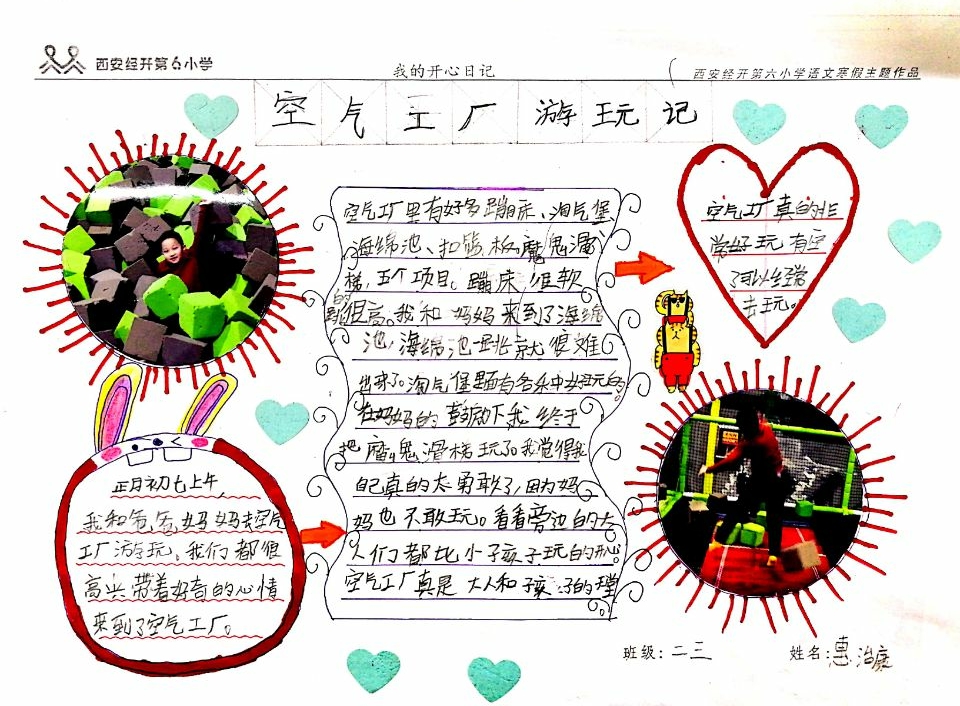 西安经开第六小学
我的开心日记
西安经开第六小学语文寒假主题作品
空气工厂游玩记
正月初七上午,
我和爸爸妈妈去空气
工厂游玩、我们都很
高兴带着好奇的心情
来到了空气工厂。
空气工厂里有好多蹦床、淘气堡
海绵池、扣篮板魔鬼滑
梯,五个项目。蹦床很软
很高。我和妈妈来到了海绵
池,海绵池进就很难
出来了。淘气堡里面有各好玩的
在妈妈的鼓励下我终于
把魔鬼滑梯玩了。我觉得我
自己真的太勇敢了,因为妈
妈也不敢玩。看看旁边的大
人们都比小孩子玩的开心
空气工厂真是大人和孩子的
空气工厂真的非
常好玩有空
了可以经常
去玩。
班级:二三
姓名:惠治康